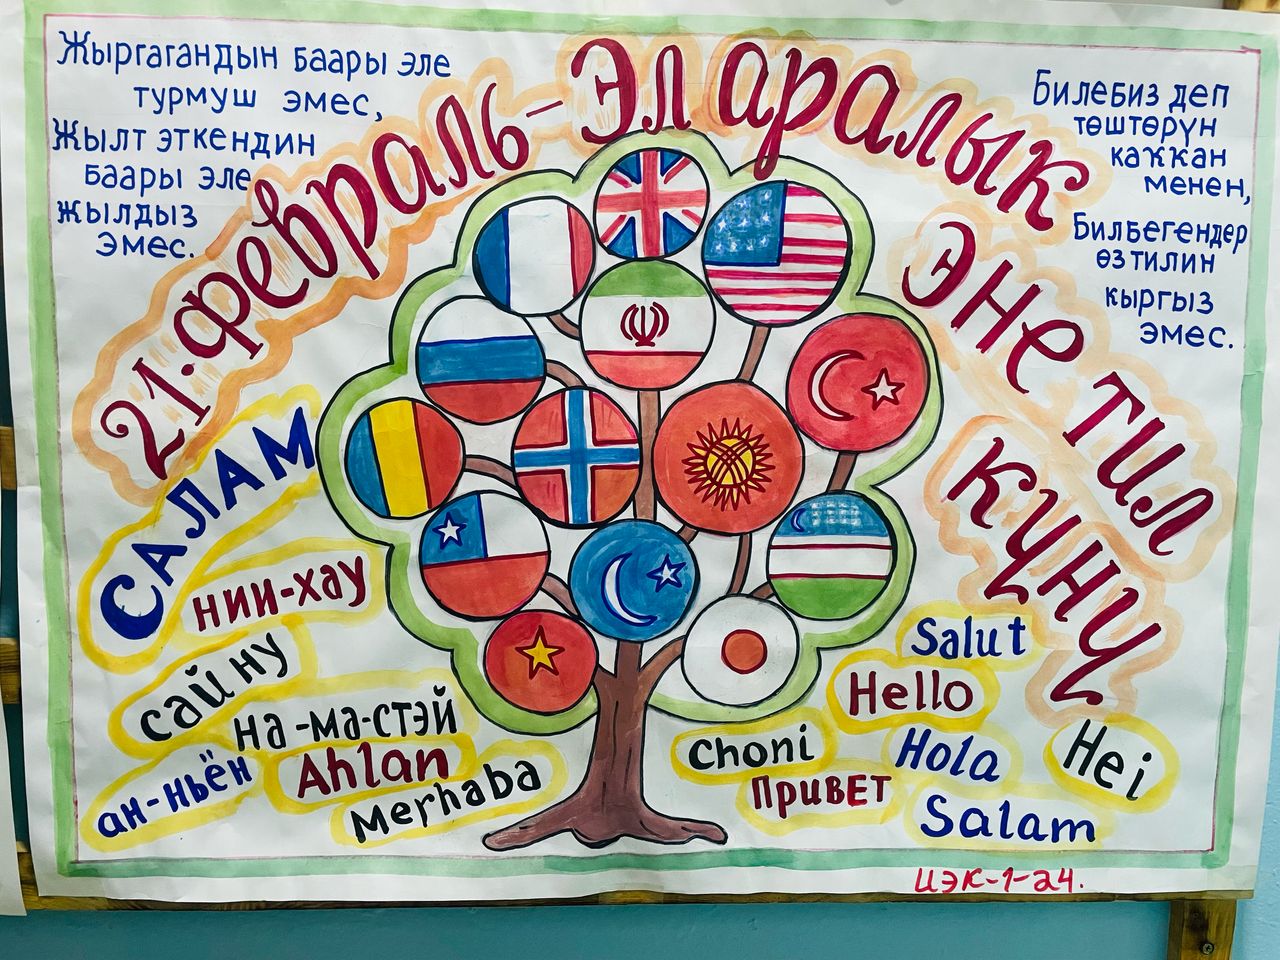 Жыргагандын баары эле
турмуш эмес,
Жылт эткендин
баары эле
жылдыз
эмес.
21-февраль-Эл аралык
эне тил
күнү
Билебиз деп
төштөрүн
каккан
менен,
Билбегендер
өз тилин
кыргыз
эмес.
САЛАМ
нии-хау
сай ну
на-ма-стэй
ан-ньён
Ahlan
Merhaba
Salut
Hello
Choni
Hola
Hei
Привет
Salam
ИЭК-1-24.